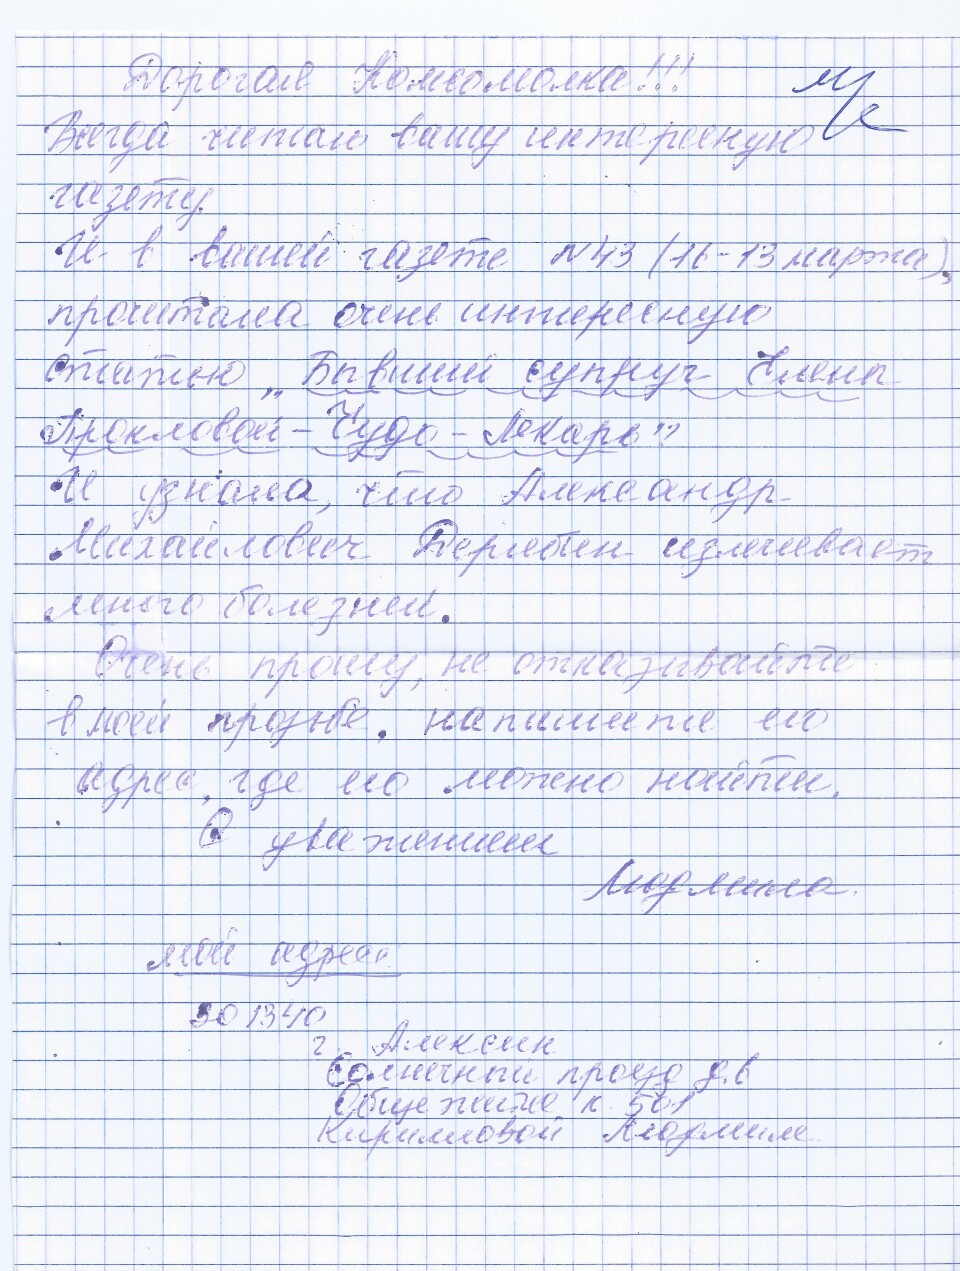 Дорогая Комсомолка!!!
МК
Всегда читаю вашу интересную
газету.
И в вашей газете №43 (16-13 марта),
прочитала очень интересную
статью „Бывший супруг Елены
Прокловой – Чудо – Лекарь"
И узнала, что Александр
Михайлович Дерябин излечивает
много болезней.
Очень прошу, не отказывайте
в моей прозьбе. напишите его
адрес, где его можно найти.
С уважением
Людмила.
мой адрес
301340
г. Алексин
Солнечный проезд д. 6
Общежитие к. 501
Кирилловой Людмиле